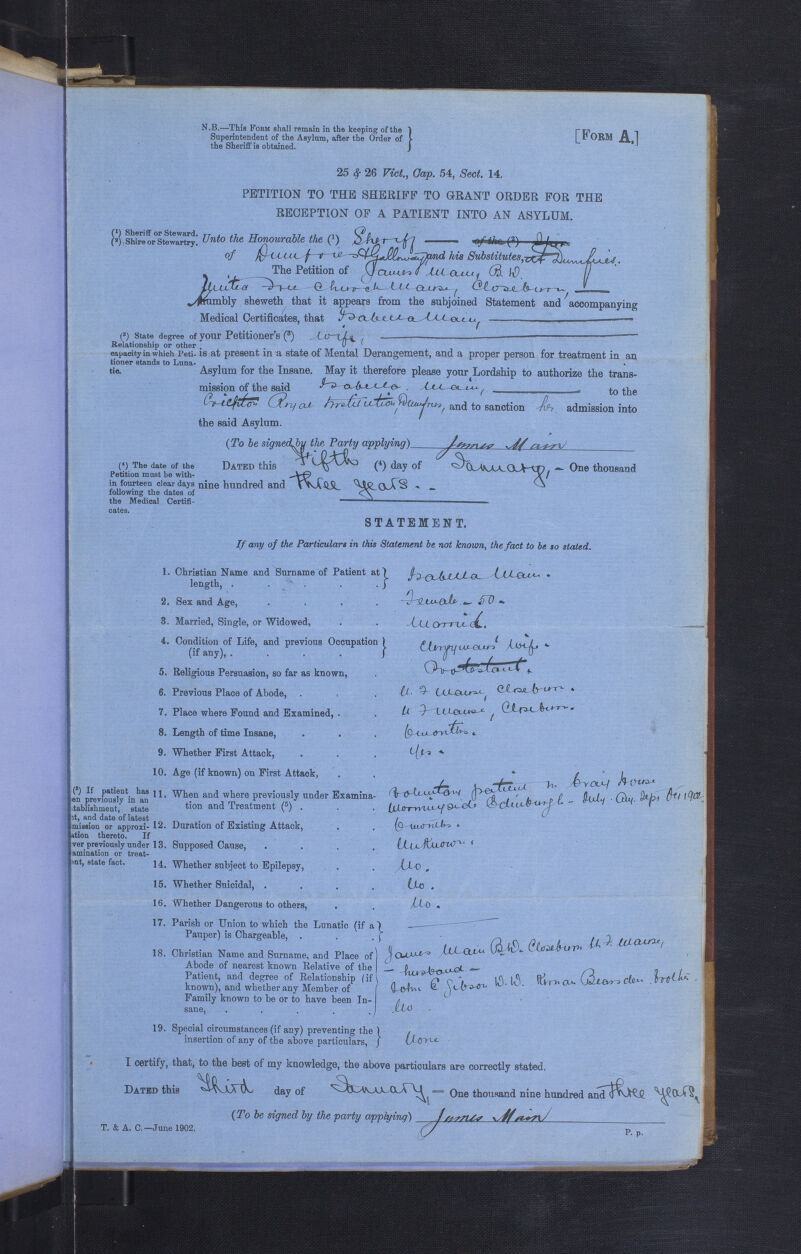 N.B.—This Form shall remain in the keeping of the
Superintendent of the Asylum, after the Order of
the Sheriff is obtained.
[Form A.]
25 & 26 Vict., Cap. 54, Sect. 14.
PETITION TO THE SHERIFF TO GRANT ORDER FOR THE
RECEPTION OF A PATIENT INTO AN ASYLUM.
(1) Sheriff or Steward.
(2) Shire or Stewartry.
Unto the Honourable the (1) Sheriff — of the (2)
of Dumfries & Galloway, and his Substitutes, at Dumfries.
The Petition of James Main, B.D.
United Free Church Manse, Closeburn, —
Humbly sheweth that it appears from the subjoined Statement and accompanying
Medical Certificates, that Isabella Main, —
(3) State degree of
Relationship or other
capacity in which Peti-
tioner stands to Luna-
tic.
your Petitioner's (3) wife, —
is at present in a state of Mental Derangement, and a proper person for treatment in an
Asylum for the Insane. May it therefore please your Lordship to authorize the trans-
mission of the said Isabella Main, — to the
Crichton Royal Institution, Dumfries, and to sanction her admission into
the said Asylum.
(To be signed by the Party applying) James Main
(4) The date of the
Petition must be with-
in fourteen clear days
following the dates of
the Medical Certifi-
cates.
Dated this Fifth (4) day of January, — One thousand
nine hundred and three years. —
STATEMENT.
If any of the Particulars in this Statement be not known, the fact to be so stated.
1. Christian Name and Surname of Patient at
length, . . . . . . Isabella Main.
2. Sex and Age, . . . . Female — 50 —
3. Married, Single, or Widowed, . . Married.
4. Condition of Life, and previous Occupation
(if any), . . . . . Clergyman's wife.
5. Religious Persuasion, so far as known, . Protestant.
6. Previous Place of Abode, . . . U. F Manse, Closeburn.
7. Place where Found and Examined, . . U F Manse, Closeburn.
8. Length of time Insane, . . . 6 months.
9. Whether First Attack, . . . Yes.
10. Age (if known) on First Attack, . .
(5) If patient has
en previously in an
tablishment, state
nt, and date of latest
mission or approxi-
ation thereto. If
ver previously under
amination or treat-
ent, state fact.
11. When and where previously under Examina-
tion and Treatment (5) . . Voluntary patient in Craig House
Morningside Edinburgh — July. Aug. Sept Oct 1902
12. Duration of Existing Attack, . . 6 months.
13. Supposed Cause, . . . . Unknown.
14. Whether subject to Epilepsy, . . No.
15. Whether Suicidal, . . . . No.
16. Whether Dangerous to others, . . No.
17. Parish or Union to which the Lunatic (if a
Pauper) is Chargeable, . . . —
18. Christian Name and Surname, and Place of
Abode of nearest known Relative of the
Patient, and degree of Relationship (if
known), and whether any Member of
Family known to be or to have been In-
sane, . . . . . .
James Main B.D. Closeburn U. F. Manse,
— husband —
John C Gibson Bearsden brother
No
19. Special circumstances (if any) preventing the
insertion of any of the above particulars, None
I certify, that, to the best of my knowledge, the above particulars are correctly stated.
Dated this Third day of January, — One thousand nine hundred and three years,
(To be signed by the party applying) James Main
T. & A. C.—June 1902.
P. p.